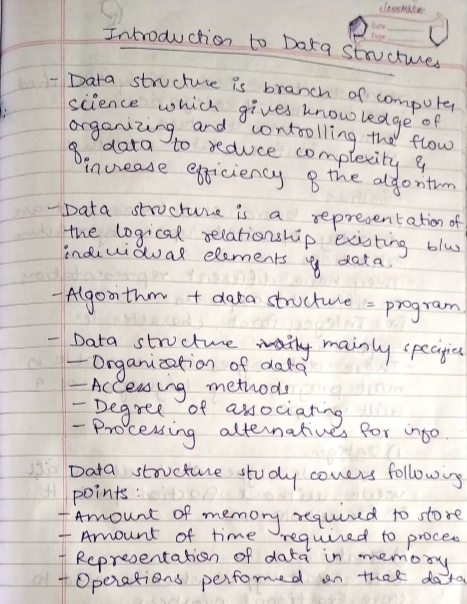 classmate
Date
Page
Introduction to Data Structures
- Data structure is branch of computer
science which gives knowledge of
organizing and controlling the flow
of data to reduce complexity &
increase efficiency of the algorithm
- Data structure is a representation of
the logical relationship existing b/w
individual elements of data.
- Algorithm + data structure = program.
- Data structure mainly specifies
- Organization of data
- Accessing methods
- Degree of associating
- Processing alternatives for info.
Data structure study covers following
points:
- Amount of memory required to store
- Amount of time required to process
- Representation of data in memory
- Operations performed on that data